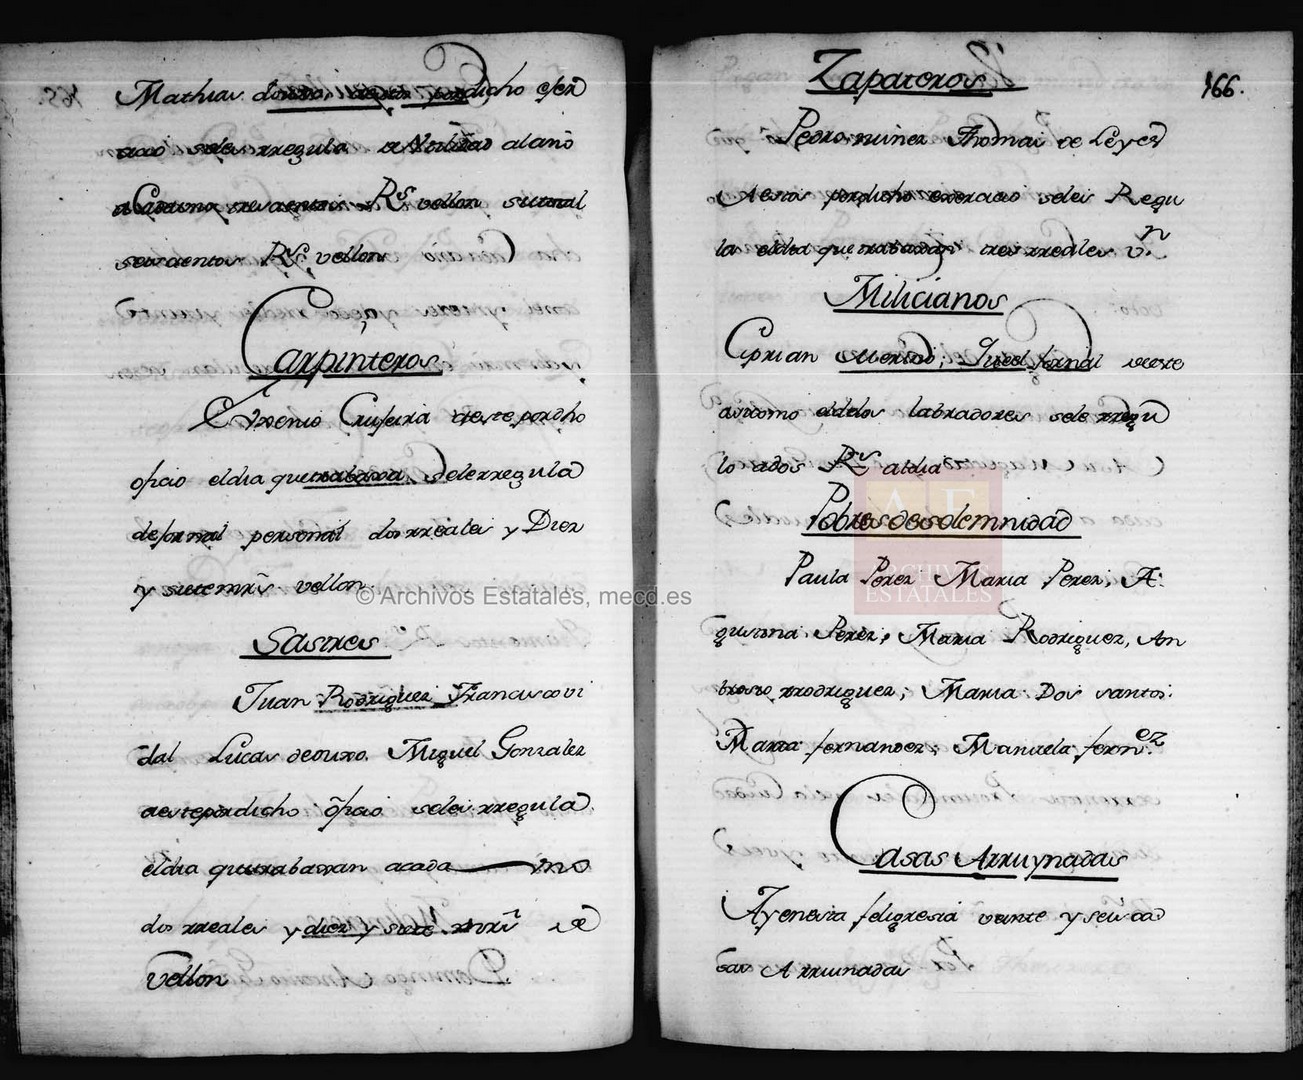 Mathias dicho exer
cicio seles rregula a Vtilidad al año
a Cada uno trescientos Rs vellon su total
seiscientos Rs vellon
Carpinteros
Eugenio Cruseira deste pordho
oficio eldia que trabaxa, selerregula
de Jornal personal dos rreales y Diez
y siete mrs vellon.
Sastres
Juan Rodriguez Francisco vi
dal Lucas de ouro. Miguel Gonzalez
aeste pordicho oficio seles rregula
eldia que trabaxan acada uno
dos rreales y diez y siete mrs de
Vellon
166.
Zapateros
Pedro nuñez Thomas de Leyes
Aestos pordicho exercicio seles Regu
la eldia que trabaxan tres rreales vn
Milicianos
Ciprian Jornal deeste
asicomo eldelos labradores sele rregu
lo ados Rs aldia
Pobres de solemnidad
Paula Perez Maria Perez; A:
gustina Perez; Maria Rodriguez, An
brosio rrodriguez; Maria Dos santos:
Maria fernandez; Manuela fernez
Casas Arruynadas
Ay enesta feligresia veinte y seis ca
sas Arruinadas
© Archivos Estatales, mecd.es
AE
ARCHIVOS
ESTATALES